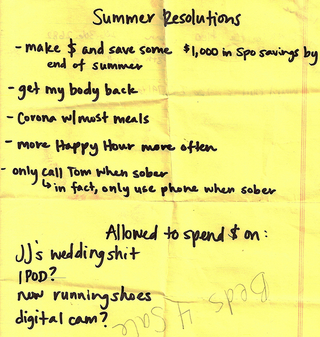 Summer Resolutions
- make $ and save some $1,000 in Spo savings by
end of summer
- get my body back
- Corona w/most meals
- more Happy Hour more often
- only call Tom when sober
↳ in fact, only use phone when sober
Allowed to spend $ on:
JJ's wedding shit
IPOD?
new running shoes
digital cam?
Beds 4 Sale